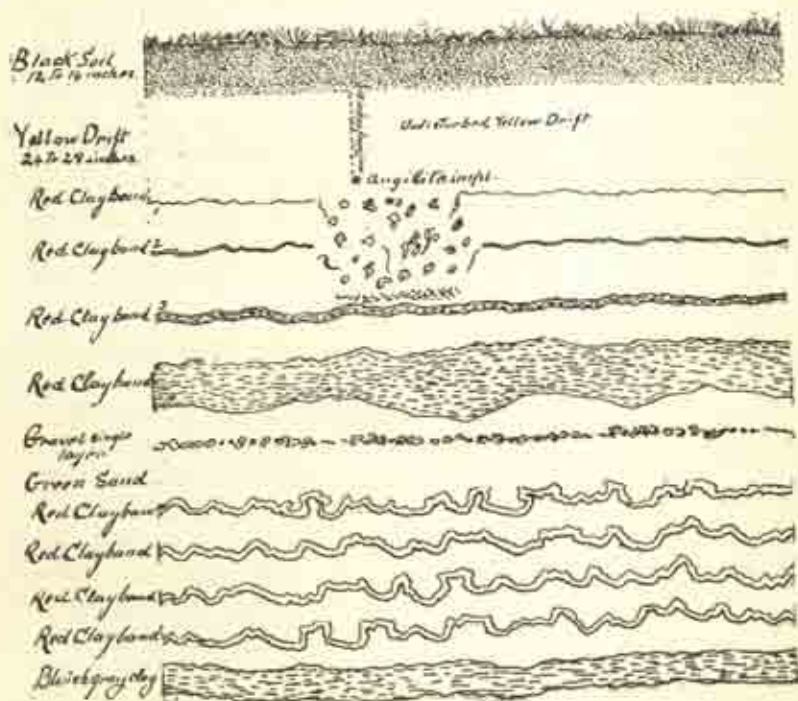 Black Soil
12 to 14 inches
Undisturbed Yellow Drift
Yellow Drift
24 to 28 inches
Red Clayband 1
Red Clayband 2
Red Clayband 3
Red Clayband
Gravel single
layer
Green Sand
Red Clayband
Red Clayband
Red Clayband
Red Clayband
Bluish gray clay